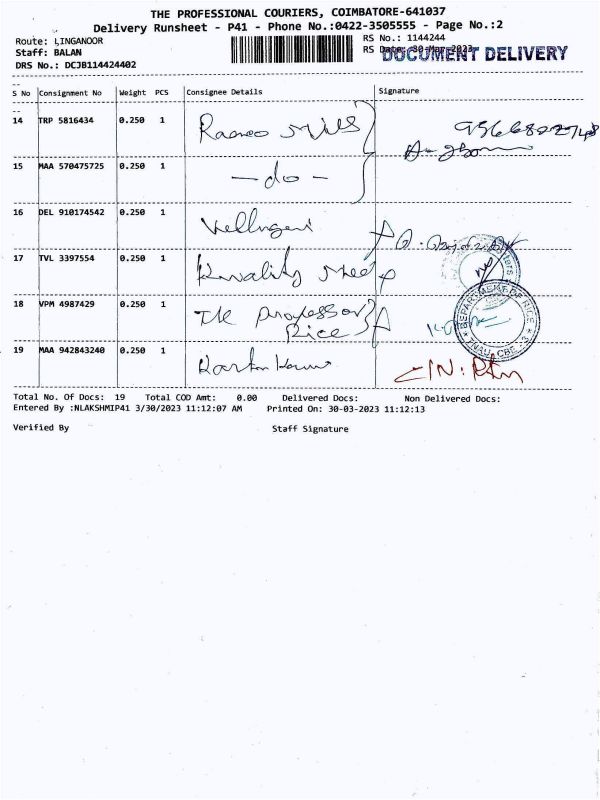 THE PROFESSIONAL COURIERS, COIMBATORE-641037
Delivery Runsheet - P41 - Phone No.:0422-3505555 - Page No.:2
Route: LINGANOOR
Staff: BALAN
DRS No.: DCJB114424402
RS No.: 1144244
RS Date: 30-Mar-2023
DOCUMENT DELIVERY
S No Consignment No Weight PCS Consignee Details Signature
14 TRP 5816434 0.250 1
15 MAA 570475725 0.250 1 - do -
16 DEL 910174542 0.250 1
17 TVL 3397554 0.250 1 Kwality
18 VPM 4987429 0.250 1 The Professor
Rice
DEPARTMENT OF RICE
TNAU, CBE - 3
19 MAA 942843240 0.250 1
Total No. Of Docs: 19 Total COD Amt: 0.00 Delivered Docs: Non Delivered Docs:
Entered By :NLAKSHMIP41 3/30/2023 11:12:07 AM Printed On: 30-03-2023 11:12:13
Verified By Staff Signature